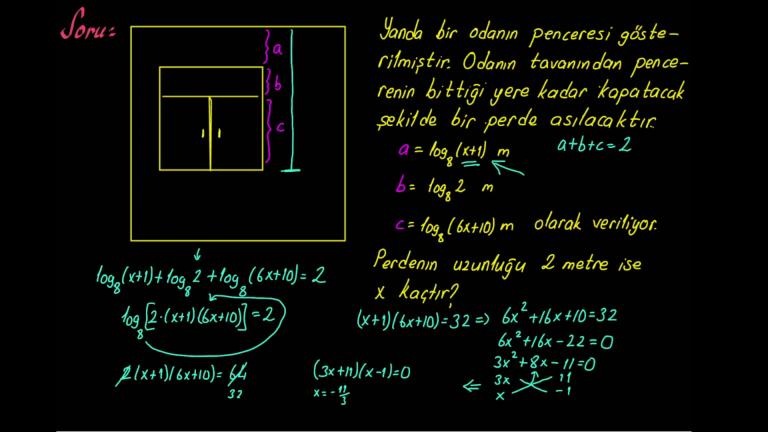 Soru=
a
b
c
Yanda bir odanın penceresi göste-
rilmiştir. Odanın tavanından pence-
renin bittiği yere kadar kapatacak
şekilde bir perde asılacaktır.
a = log₈(x+1) m
a+b+c=2
b= log₈2 m
c= log₈(6x+10)m olarak veriliyor.
Perdenin uzunluğu 2 metre ise
x kaçtır?
log₈(x+1)+log₈2+log₈(6x+10)=2
log₈[2·(x+1)(6x+10)]=2
2(x+1)(6x+10)=64
32
(x+1)(6x+10)=32 => 6x²+16x+10=32
6x²+16x-22=0
3x²+8x-11=0
3x 11
x -1
<=
(3x+11)(x-1)=0
x=-11/3